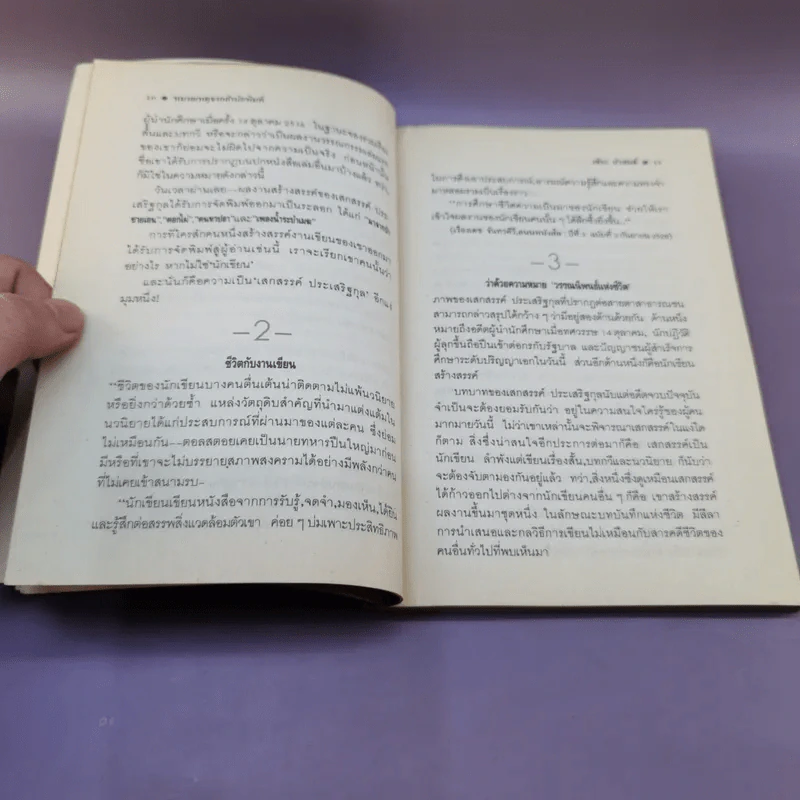 ผู้นำนักศึกษาเมื่อครั้ง ๑๔ ตุลาคม ๒๕๑๖ ในฐานะของ
สั้นและบทกวี หรือจะกล่าวว่าเป็นผลงานวรรณกรรม
ของเขาก็ย่อมจะไม่ผิดไปจากความเป็นจริง ก่อนหน้านั้น
ซึ่งเขาได้การปรากฏบนปกหนังสือเล่มอื่นมาบ้างแล้ว
ก็มิใช่ในความหมายดังกล่าวนี้
วันเวลาผ่านเลย--ผลงานสร้างสรรค์ของเสกสรรค์ ประ
เสริฐกุลได้รับการจัดพิมพ์ออกมาเป็นระลอก ได้แก่
"ดอกไผ่", "คนหาปลา" และ "เพลงน้ำระบำเมฆ"
การที่ใครสักคนหนึ่งสร้างสรรค์งานเขียนของเขาออกมา
ได้รับการจัดพิมพ์สู่ผู้อ่านเช่นนี้ เราจะเรียกเขาคนนั้นว่า
อย่างไร หากไม่ใช่ 'นักเขียน'
และนั่นก็คือความเป็น 'เสกสรรค์ ประเสริฐกุล' อีกแง่
มุมหนึ่ง!
—2—
ชีวิตกับงานเขียน
"ชีวิตของนักเขียนบางคนตื่นเต้นน่าติดตามไม่แพ้นวนิยาย
หรือยิ่งกว่าด้วยซ้ำ แหล่งวัตถุดิบสำคัญที่นำมาแต่งแต้มใน
นวนิยายได้แก่ประสบการณ์ที่ผ่านมาของแต่ละคน ซึ่งย่อม
ไม่เหมือนกัน--ตอลสตอยเคยเป็นนายทหารปืนใหญ่มาก่อน
มีหรือที่เขาจะไม่บรรยายสุภาพสงครามได้อย่างมีพลังกว่าคน
ที่ไม่เคยเข้าสนามรบ-
"นักเขียนเขียนหนังสือจากการรับรู้,จดจำ,มองเห็น,ได้ยิน
และรู้สึกต่อสรรพสิ่งแวดล้อมตัวเขา ค่อย ๆ บ่มเพาะประสิทธิภาพ
"การศึกษาชีวิตความเป็นมาของนักเขียน ช่วยให้เรา
เข้าใจผลงานของนักเขียนคนนั้น ๆ ได้ลึกซึ้งยิ่งขึ้น..."
—3—
ว่าด้วยความหมาย 'วรรณนิพนธ์แห่งชีวิต'
ภาพของเสกสรรค์ ประเสริฐกุลที่ปรากฏต่อสายตาสาธารณชน
สามารถกล่าวสรุปได้กว้าง ๆ ว่ามีอยู่สองด้านด้วยกัน ด้านหนึ่ง
หมายถึงอดีตผู้นำนักศึกษาเมื่อทศวรรษ ๑๔ ตุลาคม, นักปฏิวัติ
ผู้ลุกขึ้นถือปืนเข้าต่อกรกับรัฐบาล และปัญญาชนผู้สำเร็จการ
ศึกษาระดับปริญญาเอกในวันนี้ ส่วนอีกด้านหนึ่งก็คือนักเขียน
สร้างสรรค์
บทบาทของเสกสรรค์ ประเสริฐกุลนับแต่อดีตจวบปัจจุบัน
จำเป็นจะต้องยอมรับกันว่า อยู่ในความสนใจใคร่รู้ของผู้คน
มากมายวันนี้ ไม่ว่าเขาเหล่านั้นจะพิจารณาเสกสรรค์ในแง่ใด
ก็ตาม สิ่งซึ่งน่าสนใจอีกประการต่อมาก็คือ เสกสรรค์เป็น
นักเขียน ลำพังแต่เขียนเรื่องสั้น,บทกวีและนวนิยาย ก็นับว่า
จะต้องจับตามองกันอยู่แล้ว ทว่า,สิ่งหนึ่งซึ่งดูเหมือนเสกสรรค์
ได้ก้าวออกไปต่างจากนักเขียนคนอื่น ๆ ก็คือ เขาสร้างสรรค์
ผลงานขึ้นมาชุดหนึ่ง ในลักษณะบทบันทึกแห่งชีวิต มีลีลา
การนำเสนอและกลวิธีการเขียนไม่เหมือนกับสารคดีชีวิตของ
คนอื่นทั่วไปที่พบเห็นมา